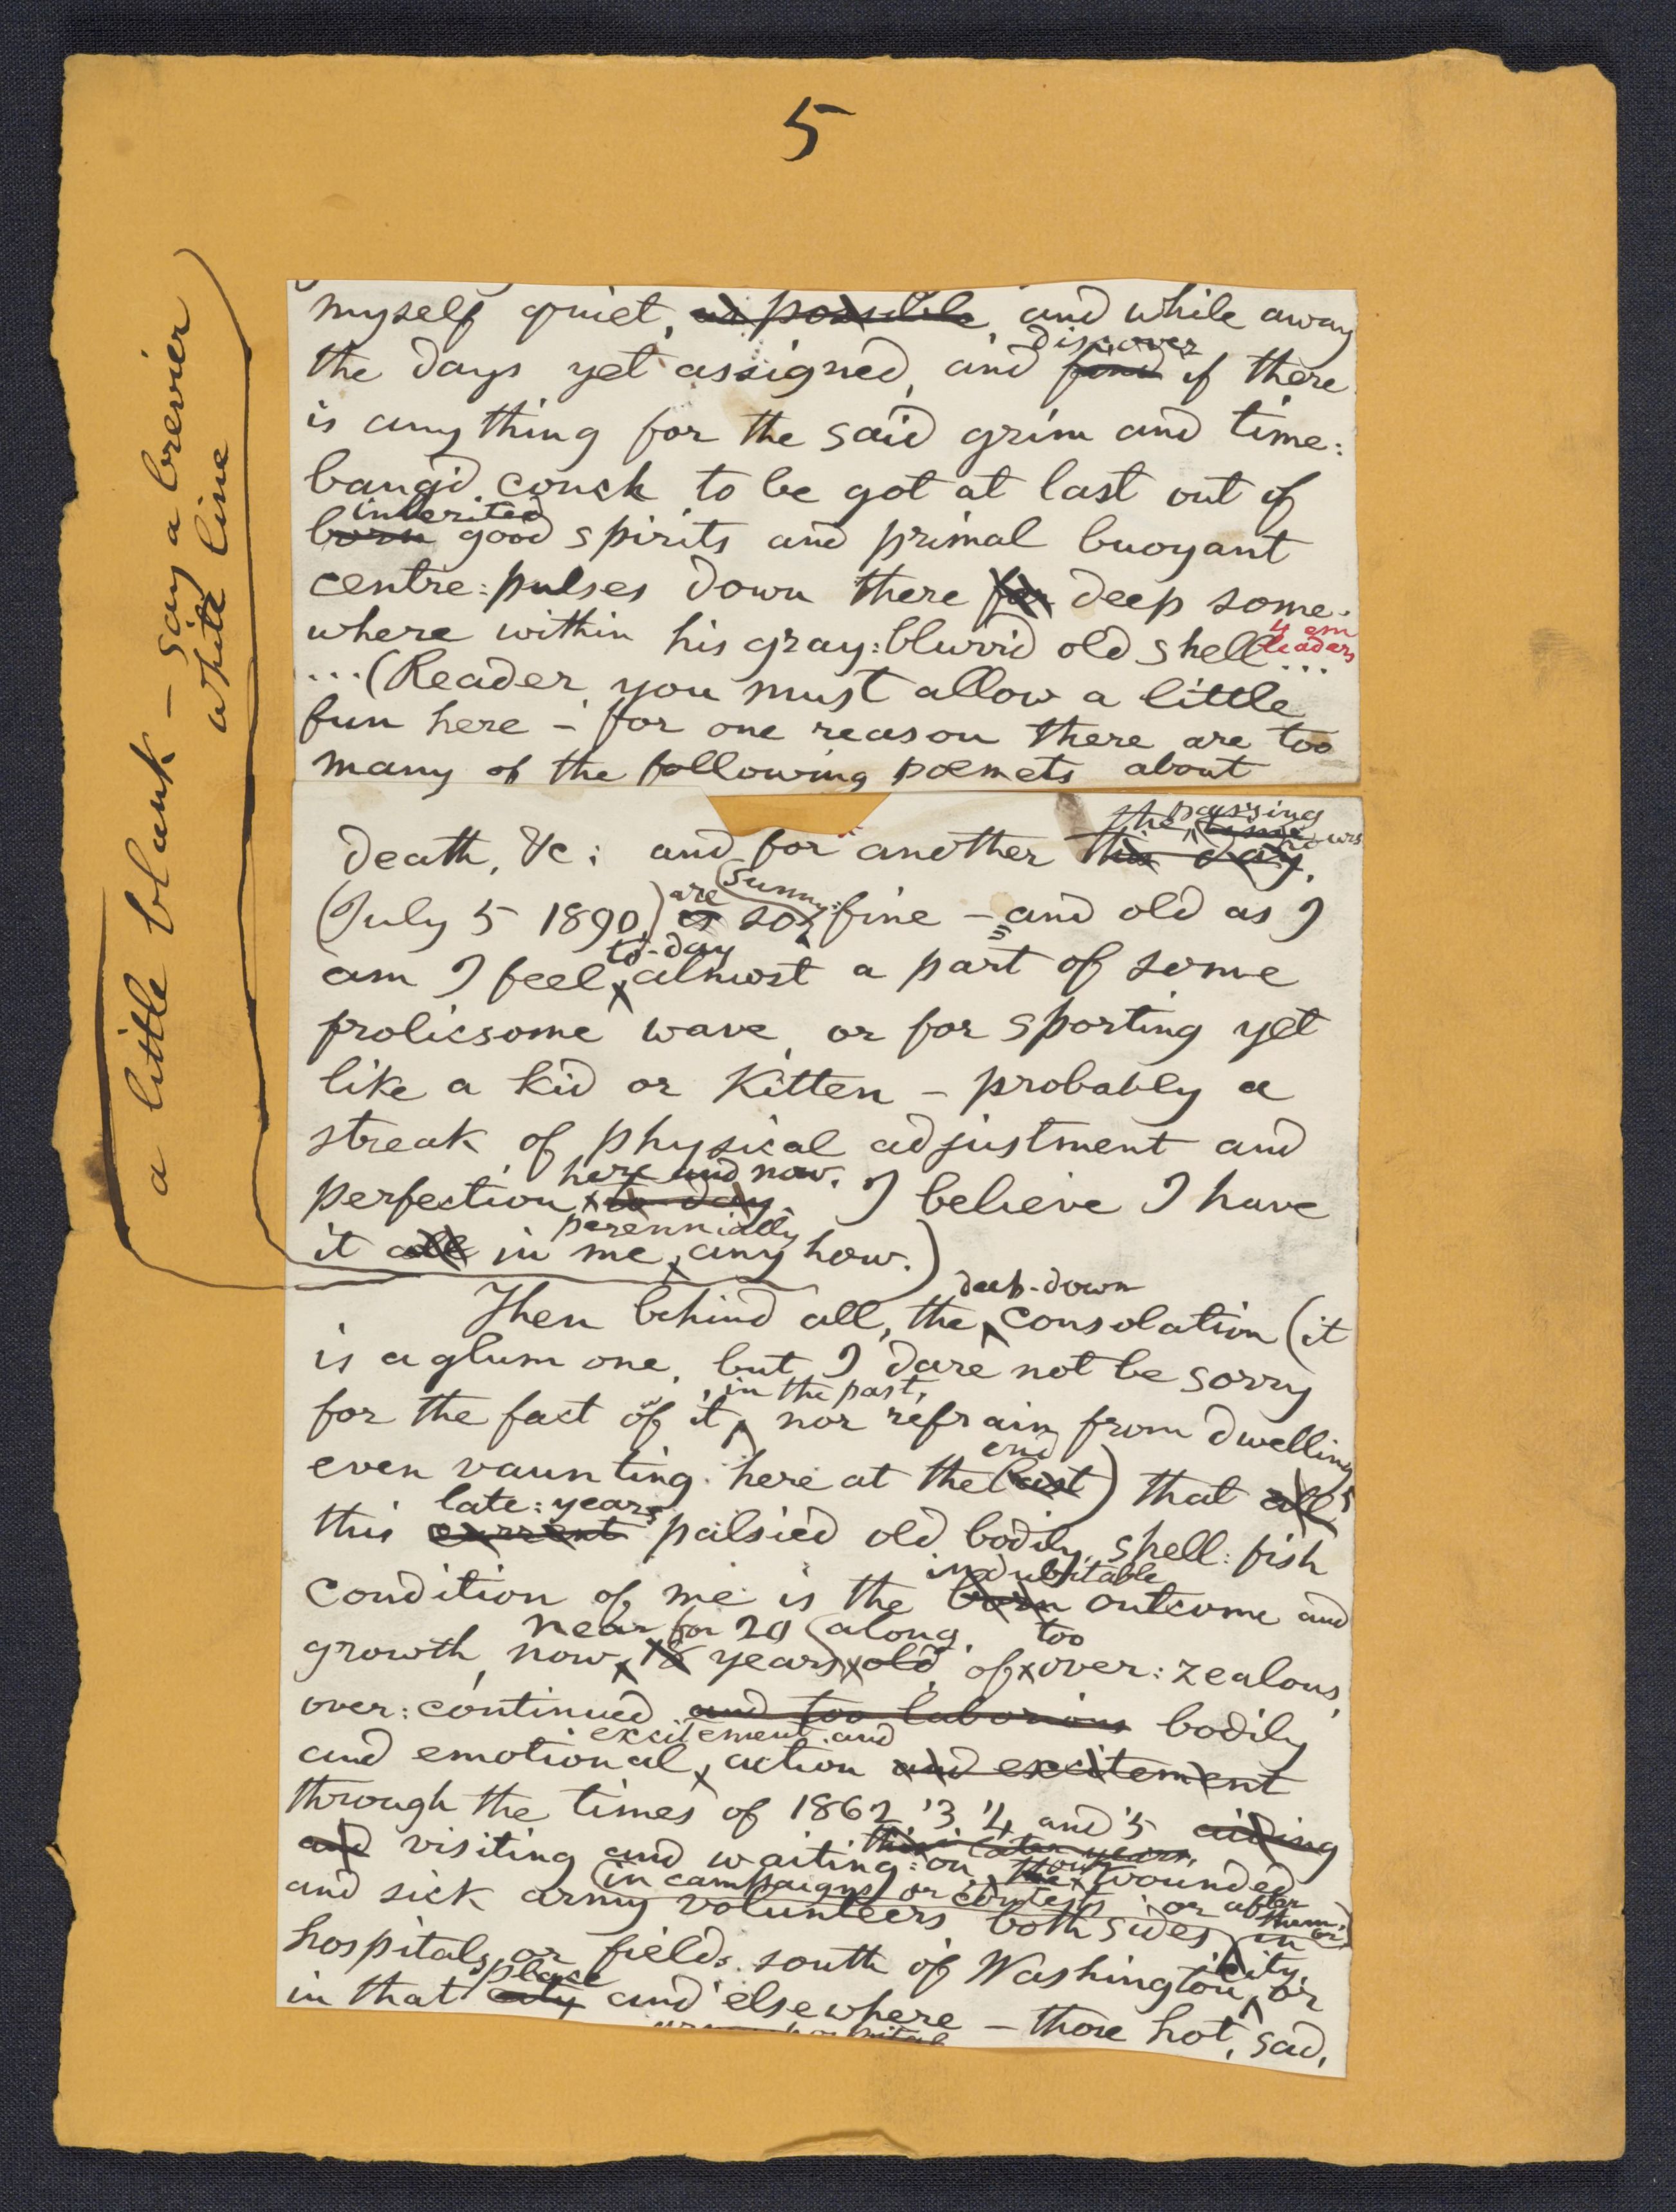 5
a little blank – say a brevier
white line
myself quiet, as possible, and while away
discover
the days yet assigned, and find if there
is any thing for the said grim and time:
bang'd conch to be got at last out of
inherited
born good spirits and primal buoyant
centre:pulses down there far deep some-
where within his gray:blurr'd old shell...
4 em
leaders
...(Reader, you must allow a little
fun here – for one reason there are too
many of the following poemets about
the passing
time hours
death, &c: and for another this day,
are sunny:
(July 5 1890,) is so fine – and old as I
to-day
am I feel almost a part of some
frolicsome wave, or for sporting yet
like a kid or kitten – probably a
streak of physical adjustment and
here and now.
perfection to day I believe I have
perennially
it all in me any how.)
deep-down
Then behind all, the consolation (it
is a glum one, but I dare not be sorry
, in the past,
for the fact of it nor refrain from dwelling,
end
even vaunting here at the last) that all
late:years
this current palsied old bodily, shell:fish
indubitable
condition of me is the born outcome and
near for 20 along, too
growth, now 18 years old, of over:zealous,
over:continued and too laborious bodily
excitement and
and emotional action and excitement
through the times of 1862, '3, '4 and '5 aiding
these later years,
and visiting and waiting:on the wounded
in campaigns or contests or after
them, or
and sick army volunteers both sides in
hospitals or fields south of Washington, or
city,
place
in that city and elsewhere – those hot, sad,